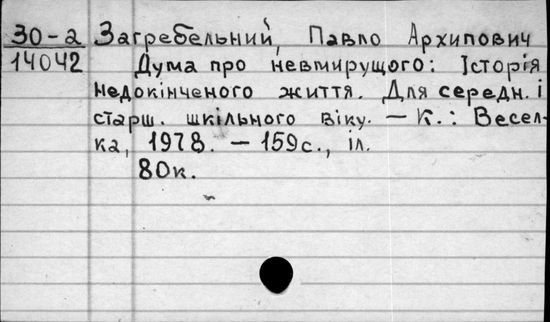 30-2 Загребельний, Павло Архипович
14042 Дума про невмирущого: Історія
недокінченого життя. Для середн. і
старш. шкільного віку. — К.: Весел-
ка, 1978. — 159с., іл.
80к.